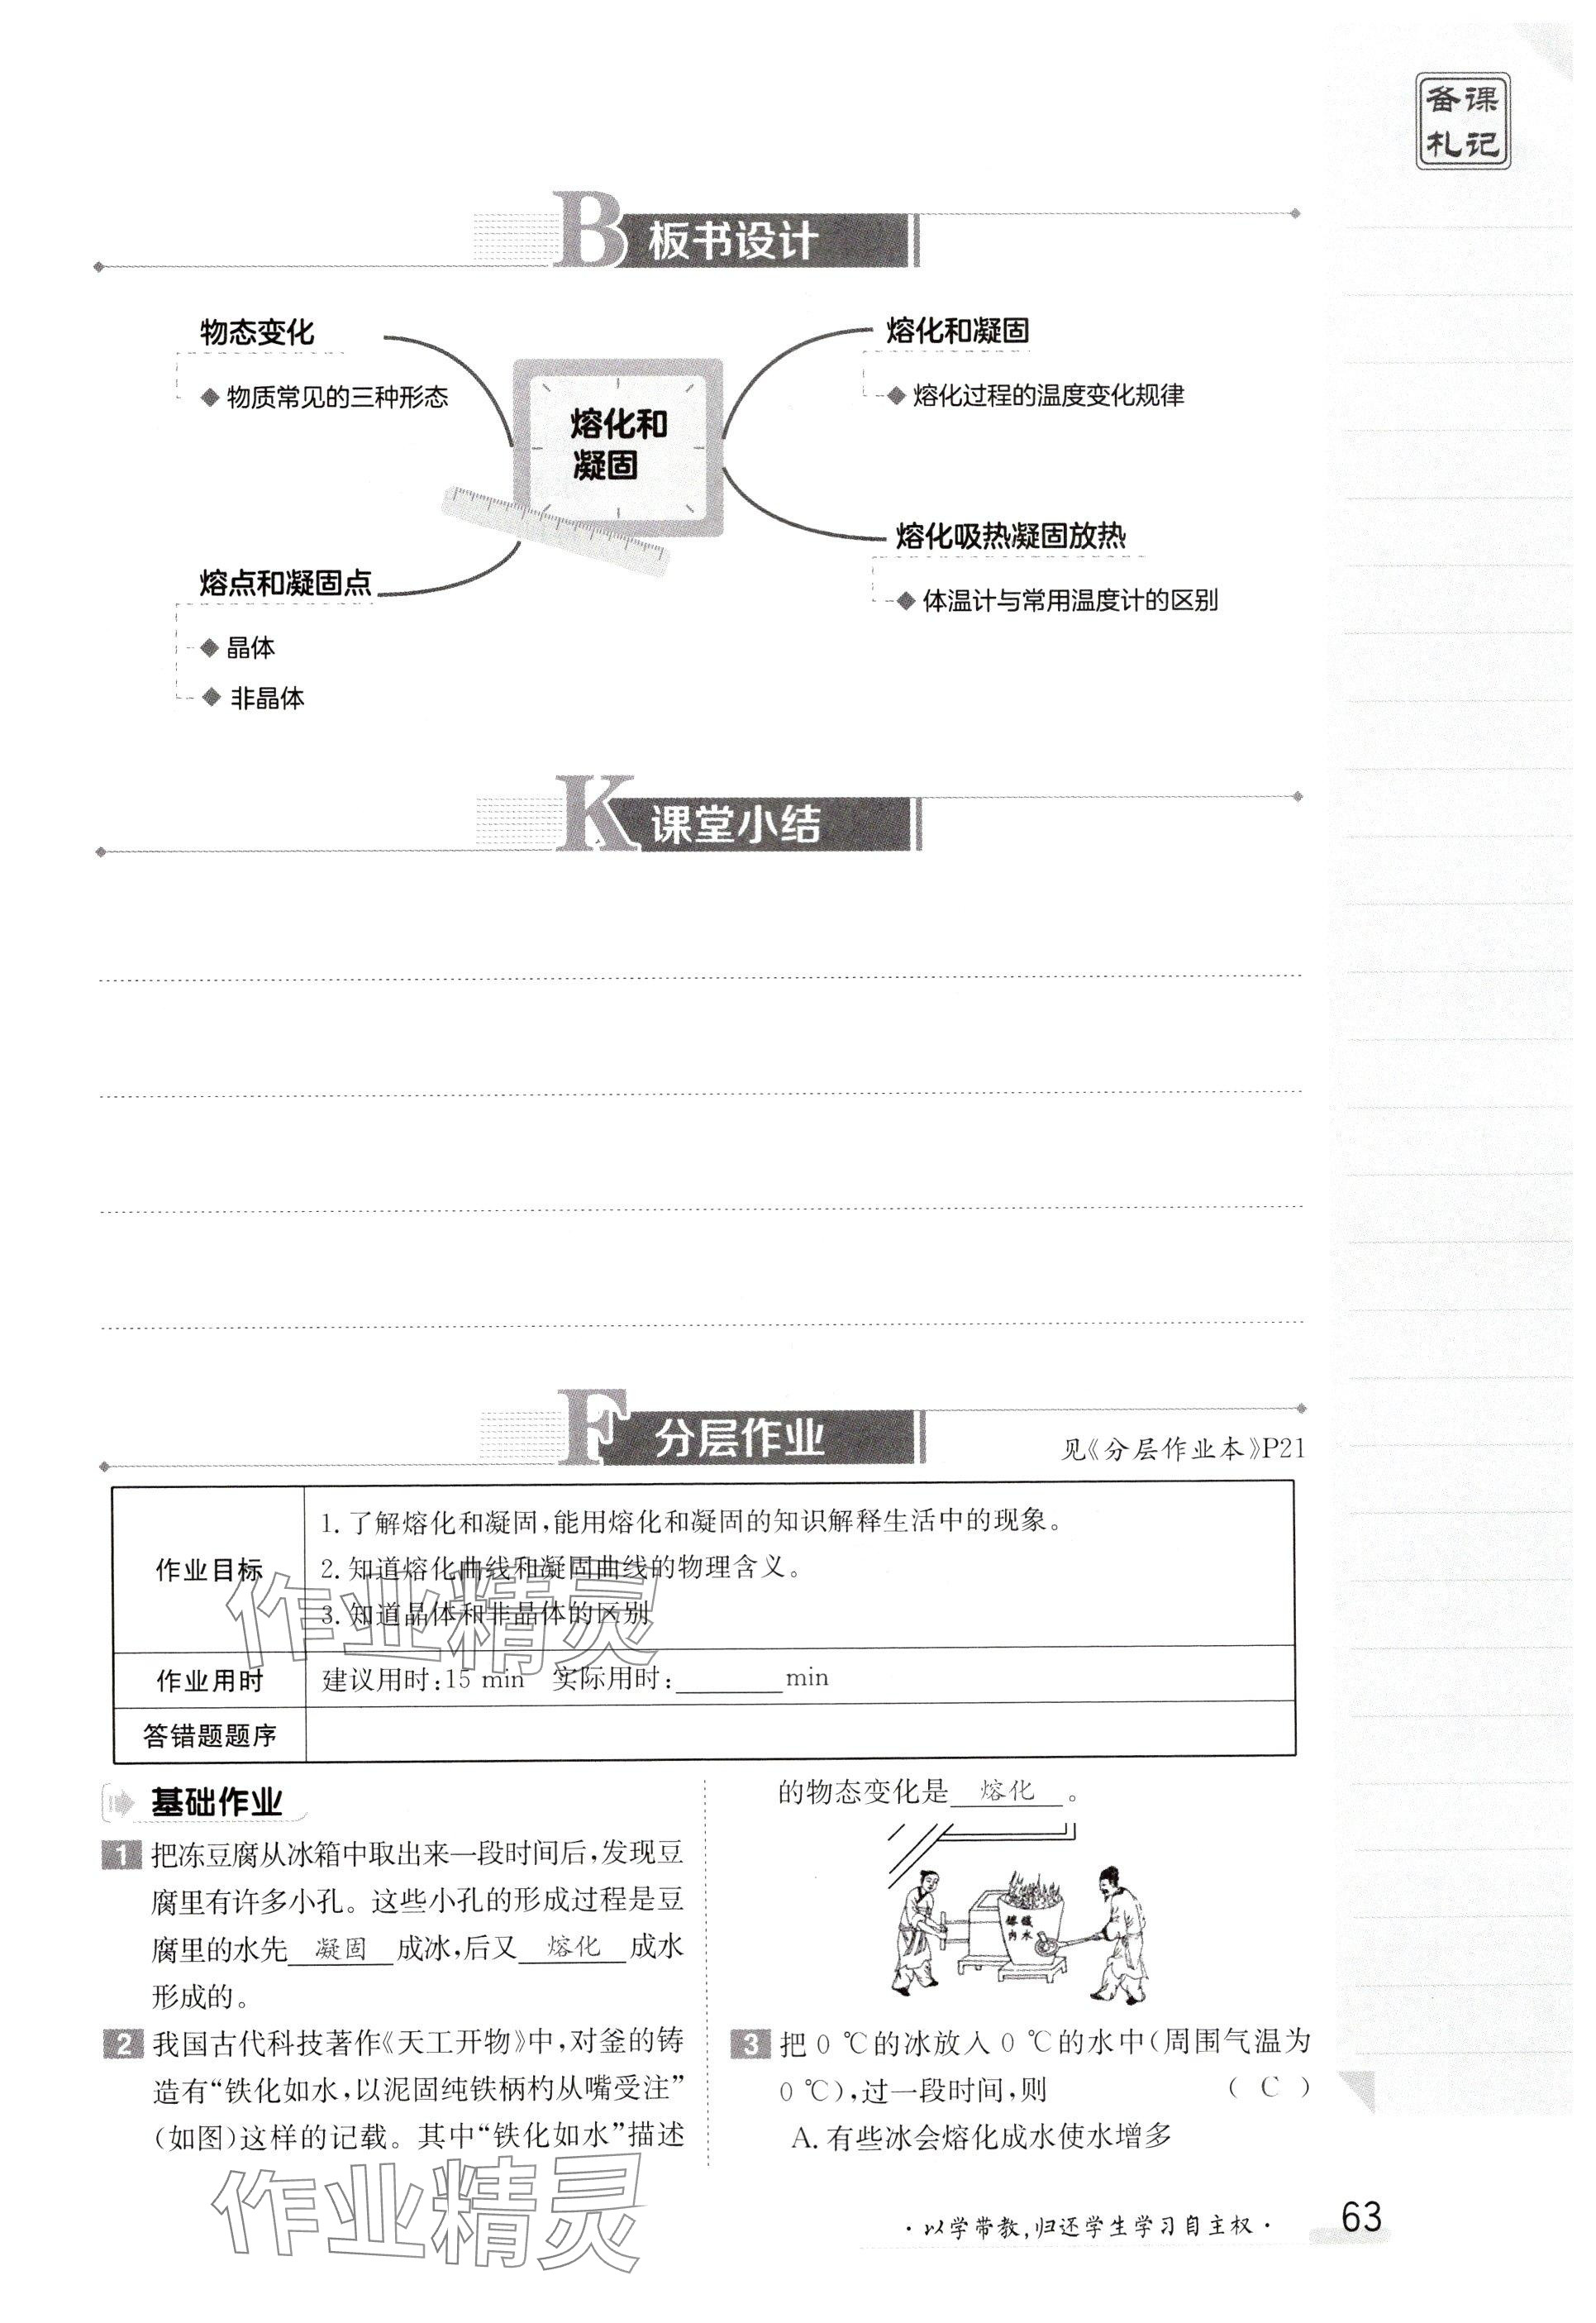 备课
札记
B 板书设计
物态变化
◆ 物质常见的三种形态
熔化和凝固
◆ 熔化过程的温度变化规律
熔化和
凝固
熔化吸热凝固放热
◆ 体温计与常用温度计的区别
熔点和凝固点
◆ 晶体
◆ 非晶体
K 课堂小结
F 分层作业
见《分层作业本》P21
作业目标
1. 了解熔化和凝固,能用熔化和凝固的知识解释生活中的现象。
2. 知道熔化曲线和凝固曲线的物理含义。
3. 知道晶体和非晶体的区别
作业精灵
作业用时 建议用时:15 min 实际用时:________min
答错题题序
基础作业
1 把冻豆腐从冰箱中取出来一段时间后,发现豆
腐里有许多小孔。这些小孔的形成过程是豆
腐里的水先 凝固 成冰,后又 熔化 成水
形成的。
2 我国古代科技著作《天工开物》中,对釜的铸
造有“铁化如水,以泥固纯铁柄杓从嘴受注”
(如图)这样的记载。其中“铁化如水”描述
的物态变化是 熔化 。
3 把 0 ℃的冰放入 0 ℃的水中(周围气温为
0 ℃),过一段时间,则 ( C )
A. 有些冰会熔化成水使水增多
作业精灵
·以学带教,归还学生学习自主权·
63